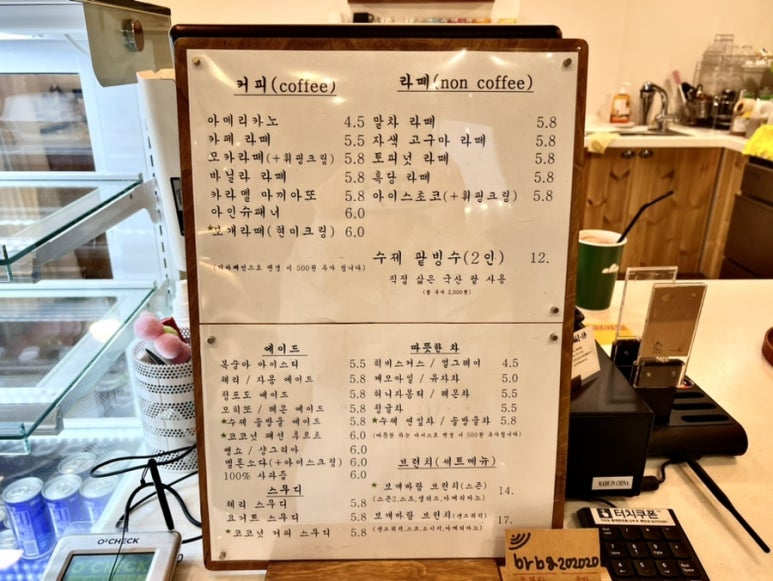 커피(coffee)
아메리카노 4.5
카페 라떼 5.5
모카라떼(+휘핑크림) 5.8
바닐라 라떼 5.8
카라멜 마끼아또 5.8
아인슈패너 6.0
*보개라떼(현미크림) 6.0
(디카페인으로 변경 시 500원 추가 됩니다)
라떼(non coffee)
말차 라떼 5.8
자색 고구마 라떼 5.8
토피넛 라떼 5.8
흑당 라떼 5.8
아이스초코(+휘핑크림) 5.8
수제 팥빙수(2인) 12.
직접 삶은 국산 팥 사용
(팥 추가 2,000원)
에이드
복숭아 아이스티 5.5
체리 / 자몽 에이드 5.8
청포도 에이드 5.8
모히또 / 레몬 에이드 5.8
*수제 돌밤들 에이드 5.8
*코코넛 패션 후르츠 6.0
뱅쇼 / 샹그리아 6.0
멜론소다(+아이스크림) 6.0
100% 사과즙 6.0
스무디
체리 스무디 5.8
요거트 스무디 5.8
*코코넛 커피 스무디 5.8
따뜻한 차
히비스커스 / 얼그레이 4.5
캐모마일 / 유자차 5.0
허니자몽티 / 레몬차 5.5
청귤차 5.5
(따뜻한 차는 아이스로 변경 시 500원 추가됩니다)
브런치(세트메뉴)
* 보개바람 브런치(스콘) 14.
보개바람 브런치(샌드위치) 17.
O'CHECK
MADE IN CHINA
터치쿠폰
br b&202020